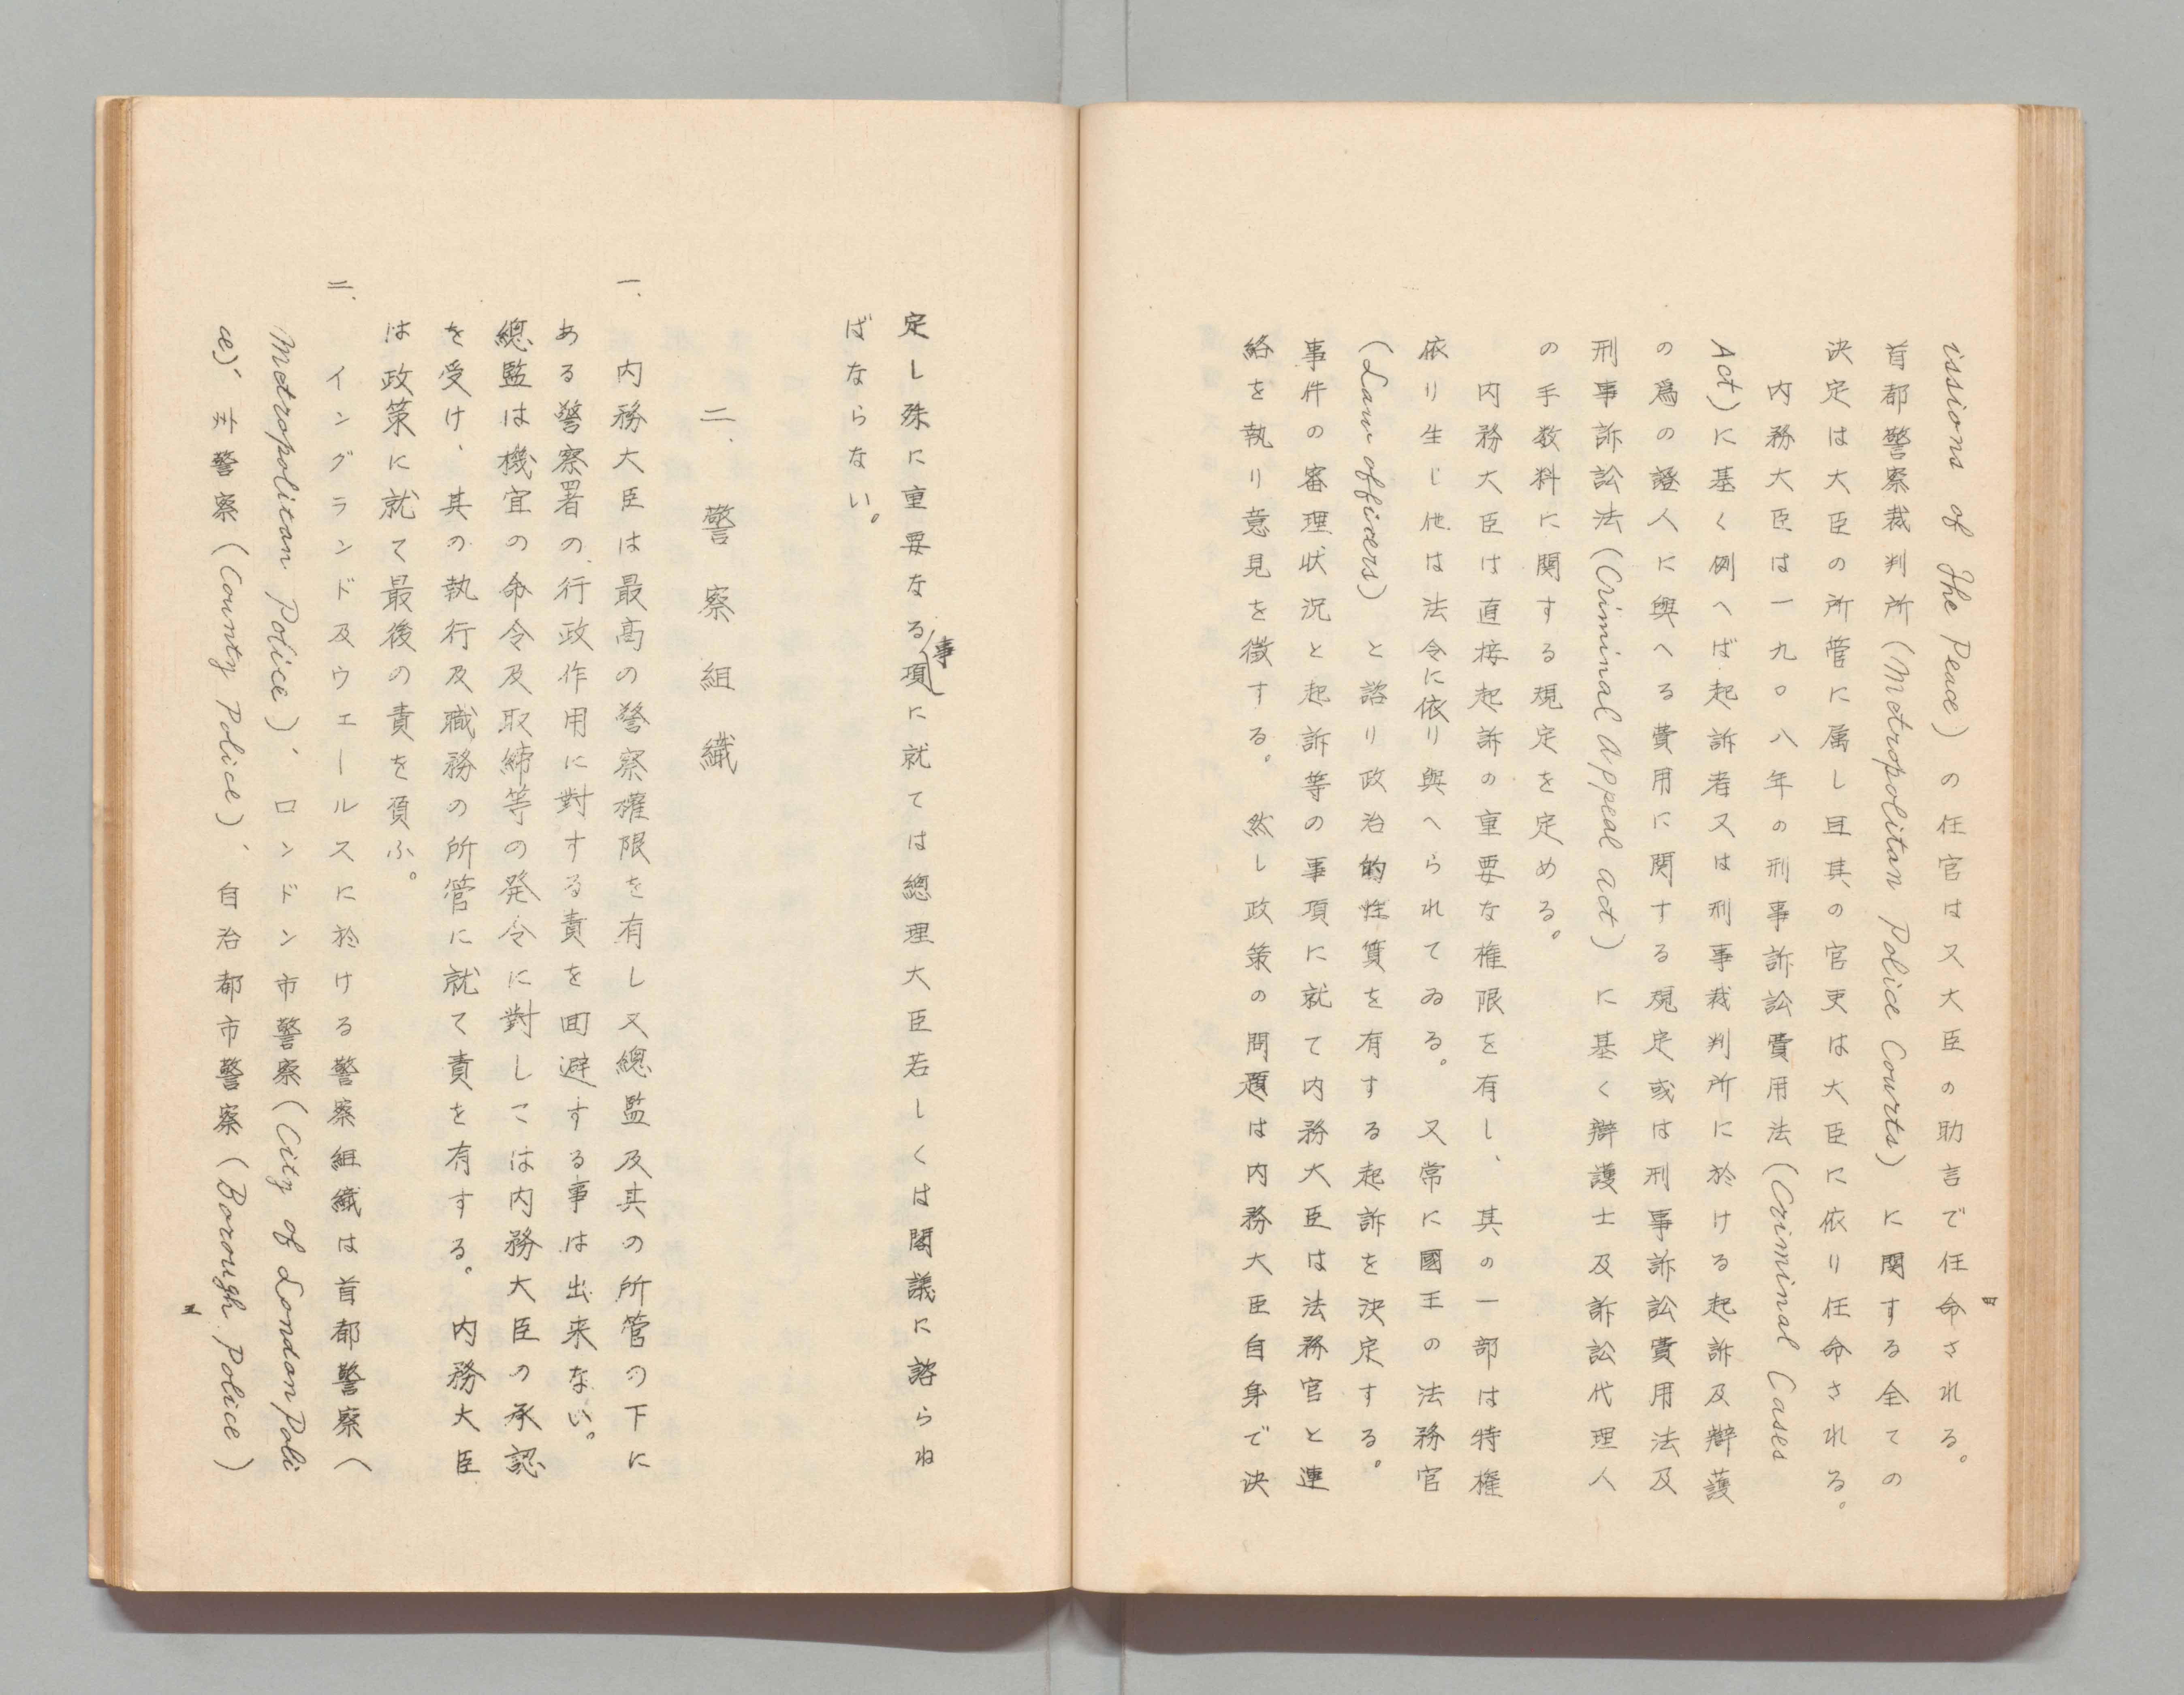 issions of the Peace)の任官は又大臣の助言で任命される。
首都警察裁判所(Metropolitan Police Courts)に関する全ての
決定は大臣の所管に属し且其の官吏は大臣に依り任命される。
内務大臣は一九〇八年の刑事訴訟費用法(Criminal Cases
Act)に基く例へば起訴者又は刑事裁判所に於ける起訴及辯護
の爲の證人に與へる費用に関する規定或は刑事訴訟費用法及
刑事訴訟法(Criminal Appeal Act)に基く辯護士及訴訟代理人
の手数料に関する規定を定める。
内務大臣は直接起訴の重要な権限を有し、其の一部は特権
依り生じ他は法令に依り與へられてゐる。又常に國王の法務官
(Law officers)と諮り政治的性質を有する起訴を決定する。
事件の審理状況と起訴等の事項に就て内務大臣は法務官と連
絡を執り意見を徴する。然し政策の問題は内務大臣自身で決
四
定し殊に重要なる事項に就ては總理大臣若しくは閣議に諮らね
ばならない。
二、警察組織
一、内務大臣は最高の警察權限を有し又總監及其の所管の下に
ある警察署の行政作用に對する責を回避する事は出来ない。
總監は機宜の命令及取締等の発令に對しては内務大臣の承認
を受け、其の執行及職務の所管に就て責を有する。内務大臣
は政策に就て最後の責を負ふ。
二、イングランド及ウエールスに於ける警察組織は首都警察(
Metropolitan Police)、ロンドン市警察(City of London Poli
ce)、州警察(County Police)、自治都市警察(Borough Police)
五